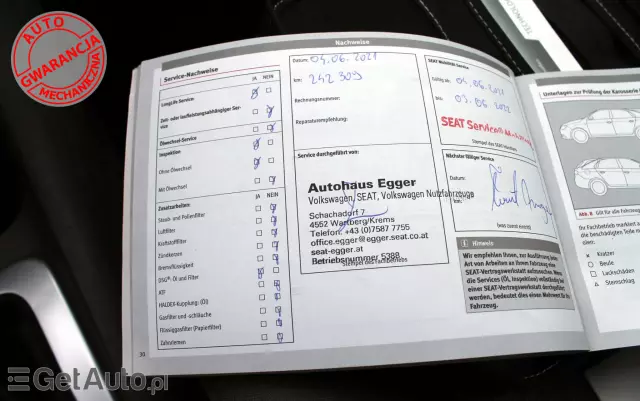 AUTO
GWARANCJA
MECHANICZNA
TECHNOLOGY
Nachweise
Service-Nachweise
JA NEIN
LongLife Service
Zeit- oder laufleistungsabhängiger Service
Ölwechsel-Service
Inspektion
Ohne Ölwechsel
Mit Ölwechsel
Zusatzarbeiten
Staub- und Pollenfilter
Luftfilter
Kraftstofffilter
Zündkerzen
Bremsflüssigkeit
DSG®: Öl und Filter
ATF
HALDEX-Kupplung: (Öl)
Gasfilter und -schläuche
Flüssiggasfilter (Papierfilter)
Zahnriemen
30
Datum: 04.06.2021
km: 242 309
Rechnungsnummer:
Reparaturempfehlung:
Service durchgeführt von:
Autohaus Egger
Volkswagen, SEAT, Volkswagen Nutzfahrzeuge
Schachadorf 7
4552 Wartberg/Krems
Telefon: +43 (0)7587 7755
office.egger@egger.seat.co.at
seat-egger.at
Betriebsnummer 5388
Stempel des Fachbetriebs
SEAT Mobilitäts-Service
Gültig ab: 04.06.2021
bis: 03.06.2022
SEAT Service
Stempel des SEAT Betriebs
Nächster fälliger Service
Datum:
km:
(was zuerst eintritt)
Hinweis
Wir empfehlen Ihnen, zur Ausführung jeder
Art von Arbeiten an Ihrem Fahrzeug eine
SEAT-Vertragswerkstatt aufzusuchen. Wenn
die Services (Öl, Inspektion) vollständig bei
einer SEAT-Vertragswerkstatt durchgeführt
werden, bedeutet dies einen Mehrwert für Ihr
Fahrzeug.
Unterlagen zur Prüfung der Karosserie
Abb. 8 Gilt für alle
Ihr Fachbetrieb markiert
die beschädigten Teile
mit
Kratzer
Beule
Lackschäden
Steinschlag
GetAuto.pl